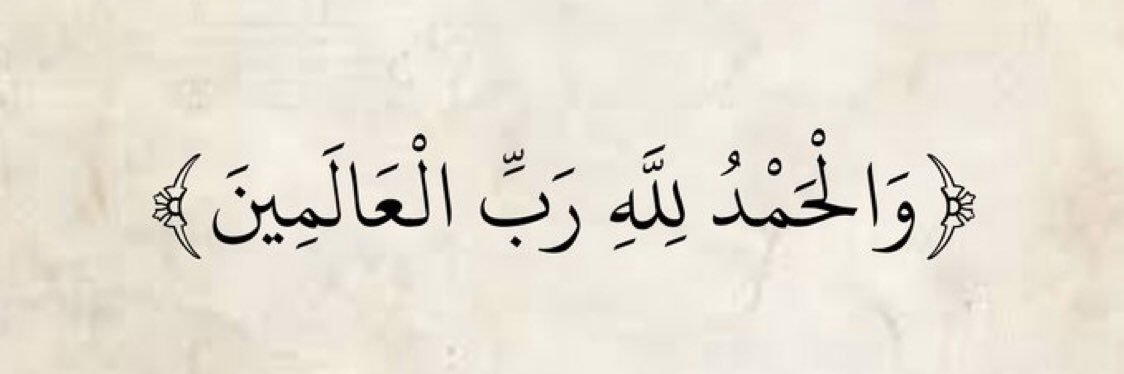 ﴿وَالْحَمْدُ لِلَّهِ رَبِّ الْعَالَمِينَ﴾